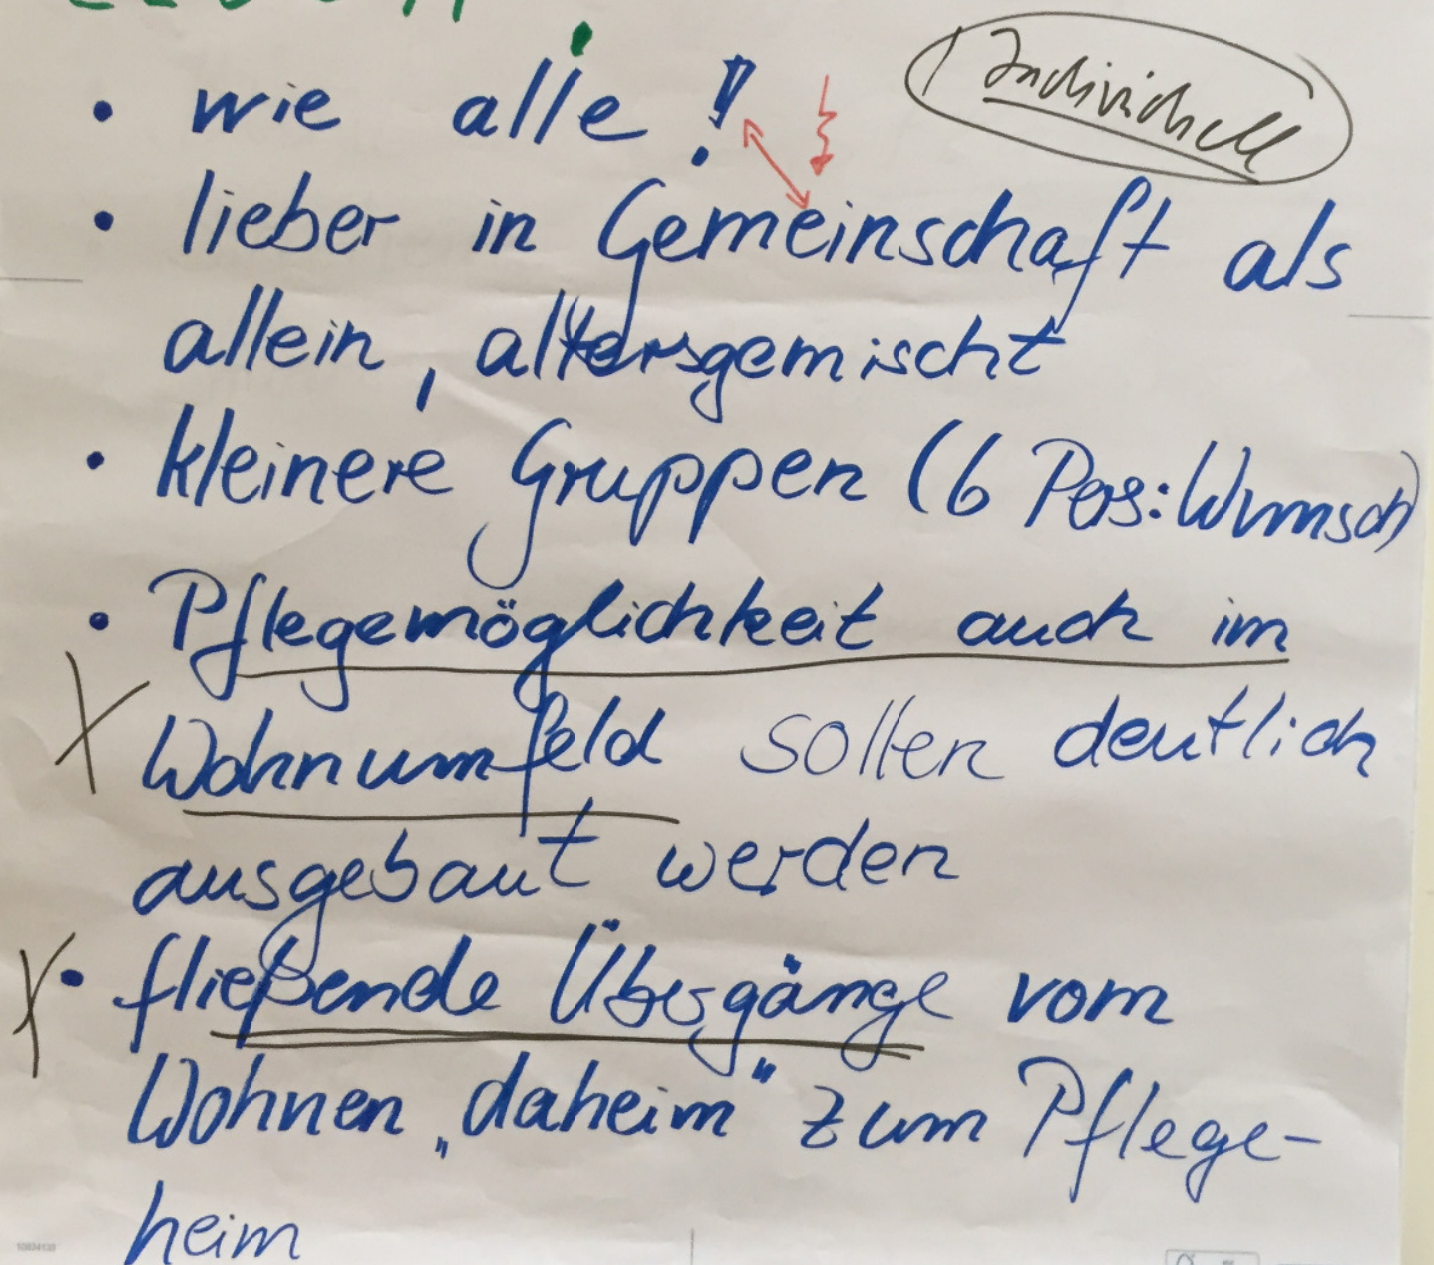 Individuell
• wie alle !
• lieber in Gemeinschaft als
allein, altersgemischt
• kleinere Gruppen (6 Pers: Wunsch)
• Pflegemöglichkeit auch im
Wohnumfeld sollen deutlich
ausgebaut werden
• fließende Übergänge vom
Wohnen „daheim" zum Pflege-
heim